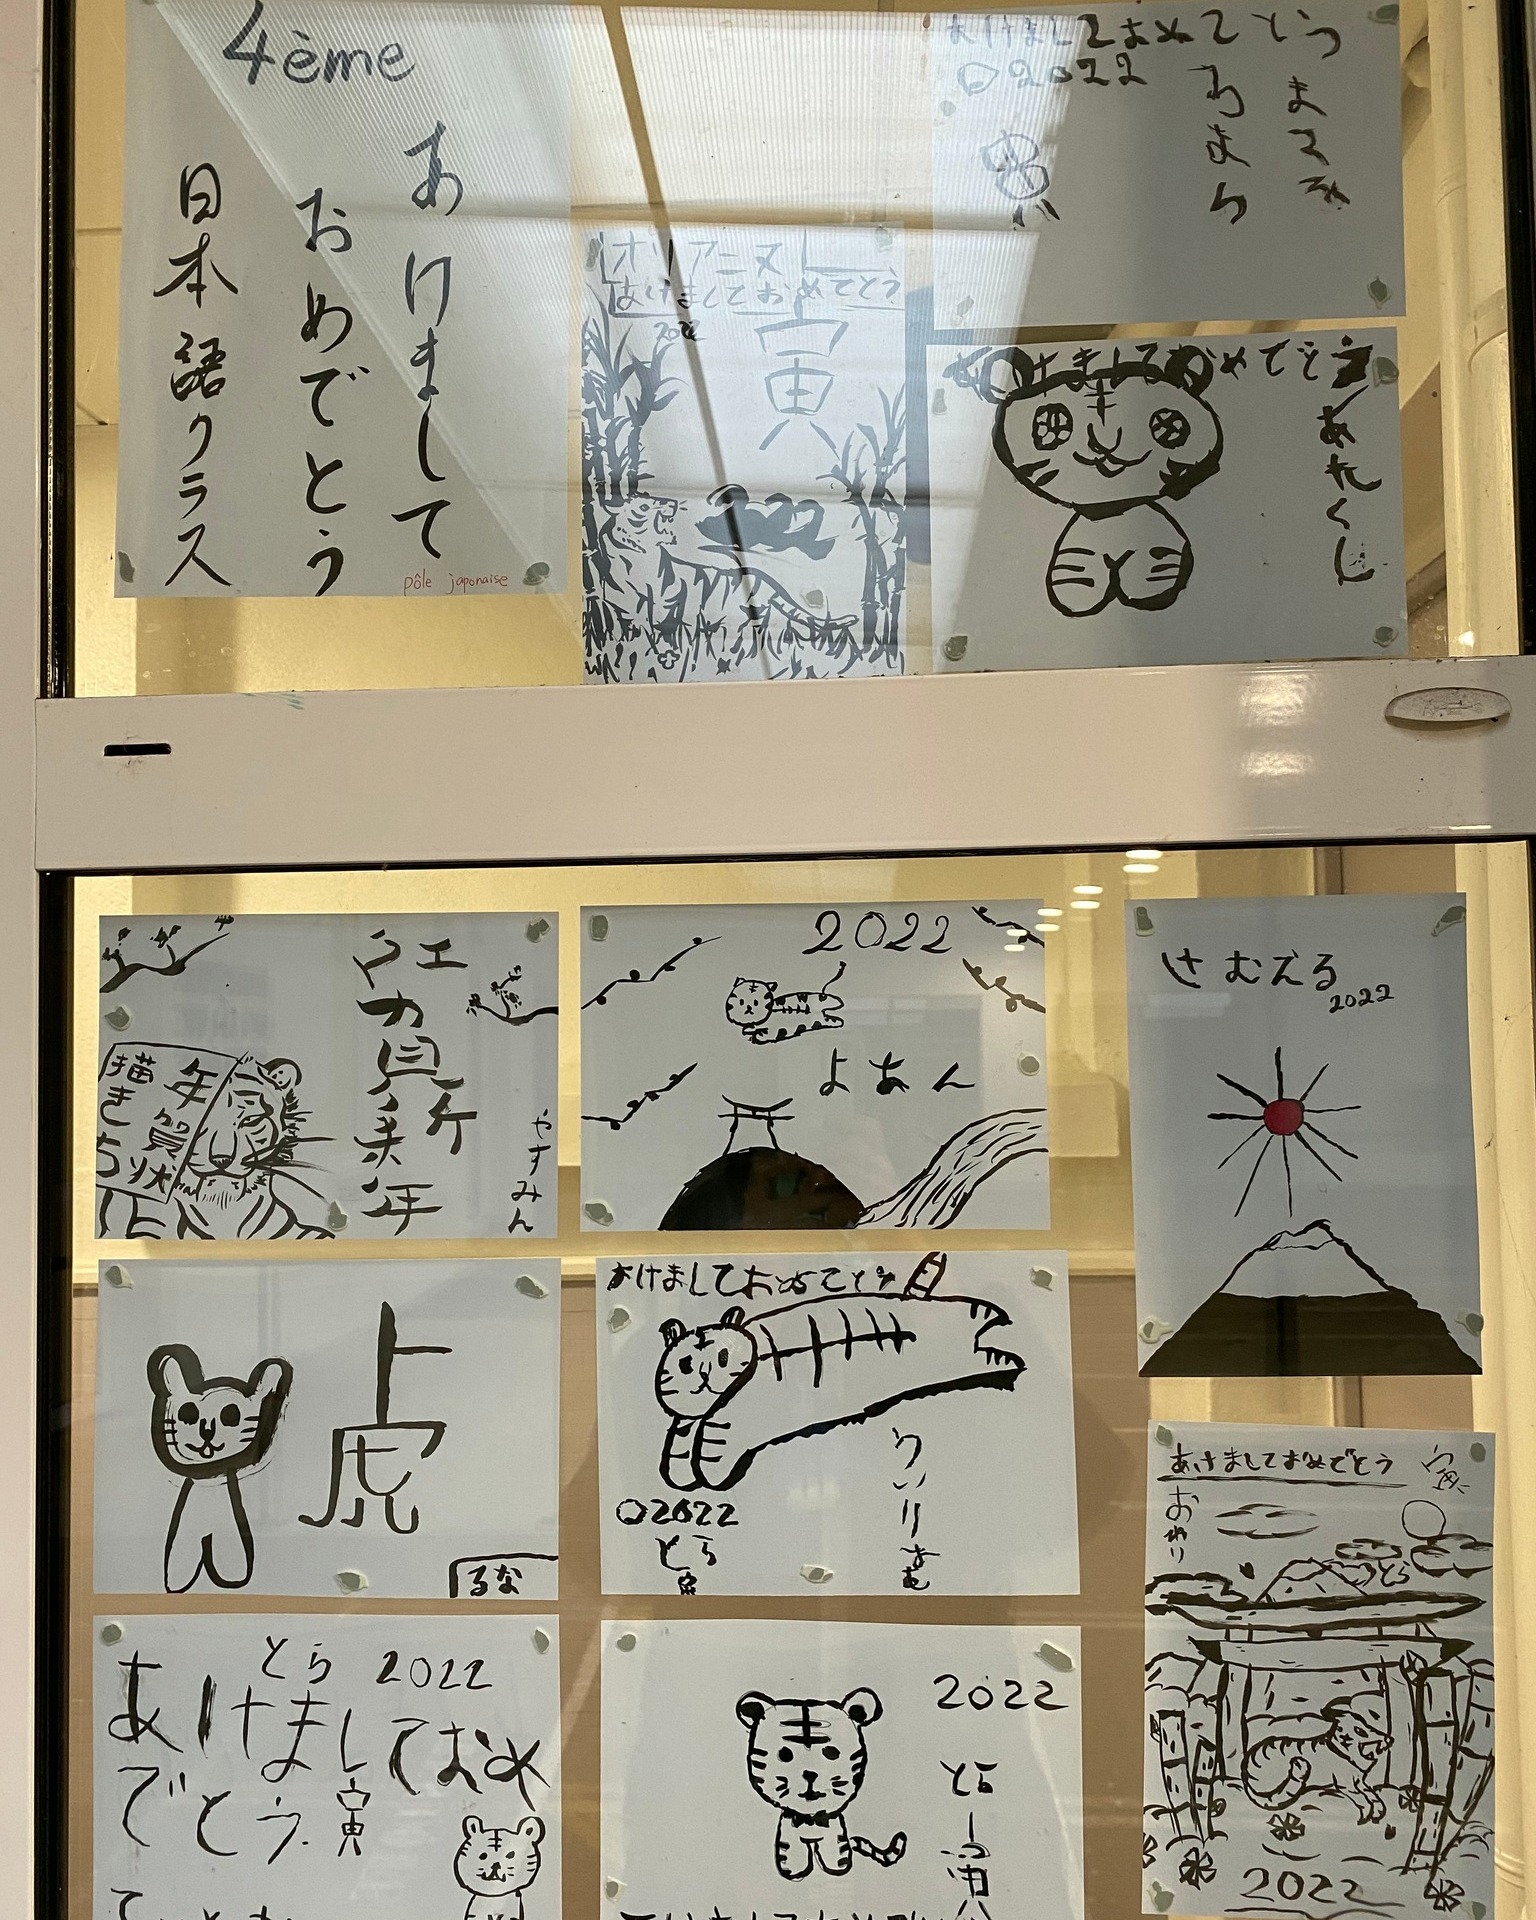 4ème
あけまして
おめでとう
日本語クラス
pôle japonaise
オリアニヌ
あけましておめでとう
2022
寅
あけましておめでとう
2022
あけましておめでとう
あれくし
年賀状
描きち
年
やすみん
2022
よあん
さむえる
2022
虎
るな
あけましておめでとう
2022
とら
うぃりあむ
あけましておめでとう
寅
とら
2022
とら 2022
あけましておめ
でとう
寅
2022
とら